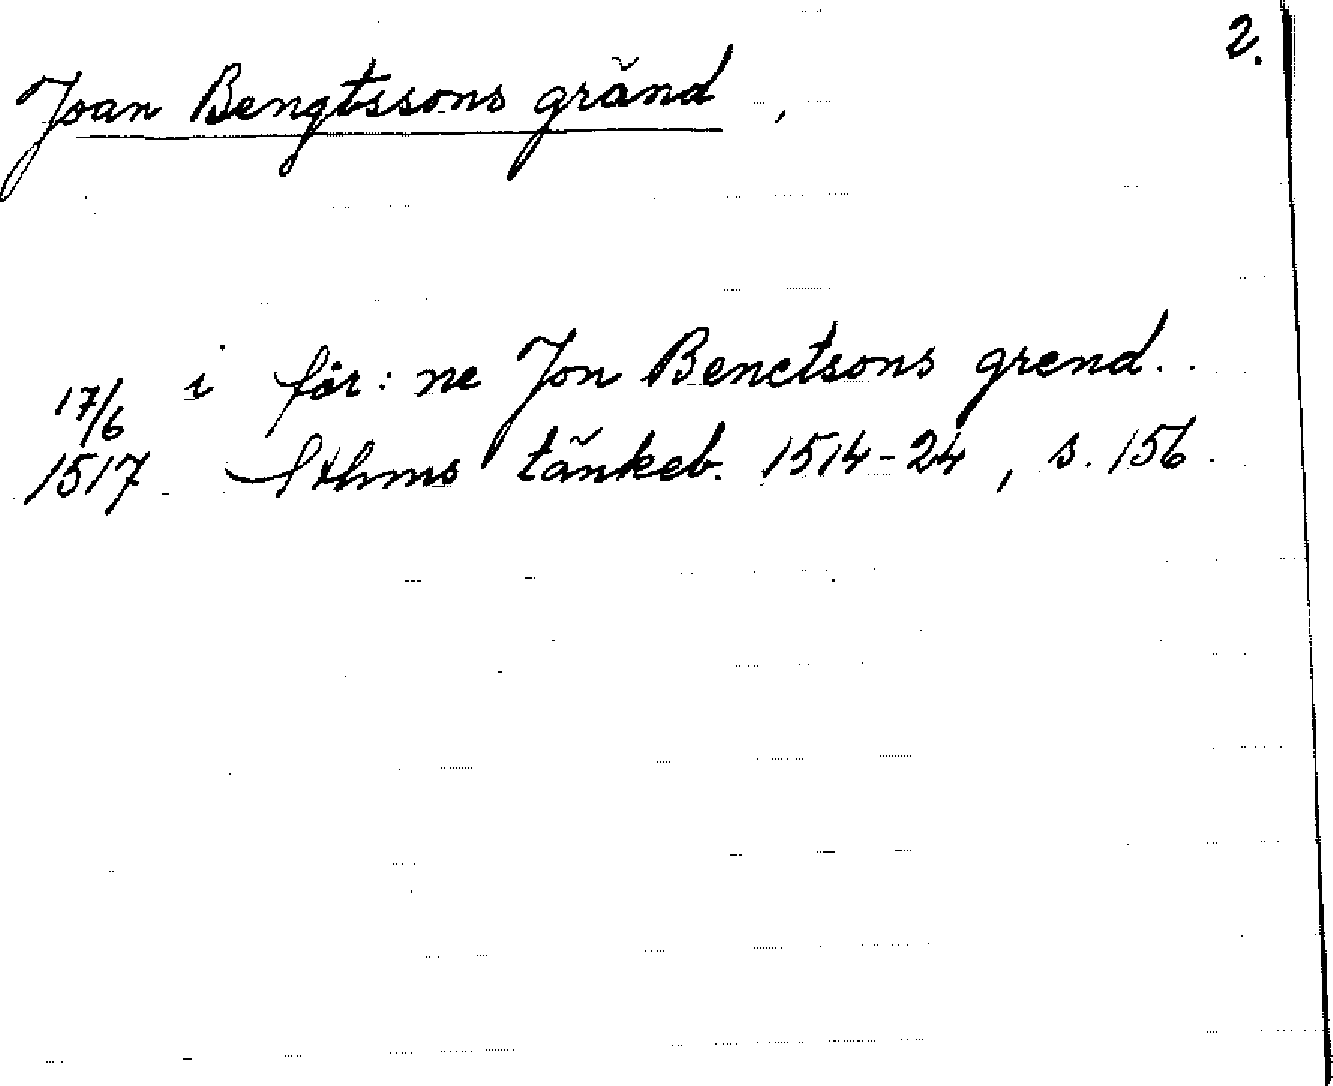 2.
Joan Bengtssons gränd,
17/6 i för: ne Jon Benctsons grend..
1517. Sthms tänkeb. 1514-24, s. 156.